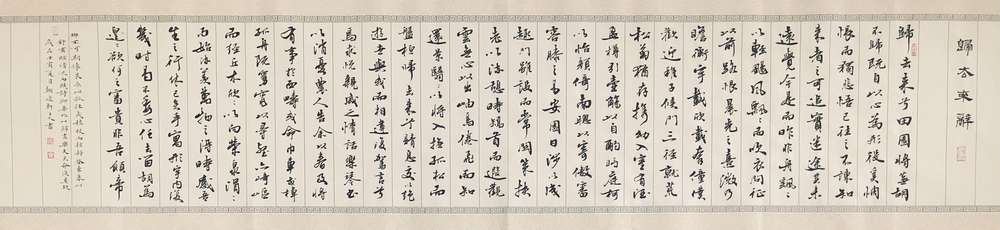 歸去來辭
歸去来兮田園將蕪胡
不歸既自以心為形役奚惆
悵而獨悲悟已往之不諫知
来者之可追實迷途其未
遠覺今是而昨非舟遙〻
以輕颺風飄〻而吹衣問征
以前路恨晨光之熹微乃
瞻衡宇載欣載奔僮僕
歡迎稚子候門三徑就荒
松菊猶存攜幼入室有酒
盈樽引壺觴以自酌眄庭柯
以怡顏倚南窗以寄傲審
容膝之易安園日涉以成
趣門雖設而常關策扶
老以流憩時矯首而遐觀
雲無心以出岫鳥倦飛而知
還景翳以將入撫孤松而
盤桓歸去来兮請息交以絕
遊世與我而相遺復駕言兮
焉求悅親戚之情話樂琴書
以消憂農人告余以春及將
有事於西疇或命巾車或棹
孤舟既窈窕以尋壑亦崎嶇
而經丘木欣〻以向榮泉涓〻
而始流羨萬物之得時感吾
生之行休已矣乎寓形宇内復
幾時曷不委心任去留胡為
遑〻欲何之富貴非吾願帝
鄉不可期懷良辰以孤往或植杖而耘耔登東皋以
舒嘯臨清流而賦詩聊乘化以歸盡樂夫天命復奚疑